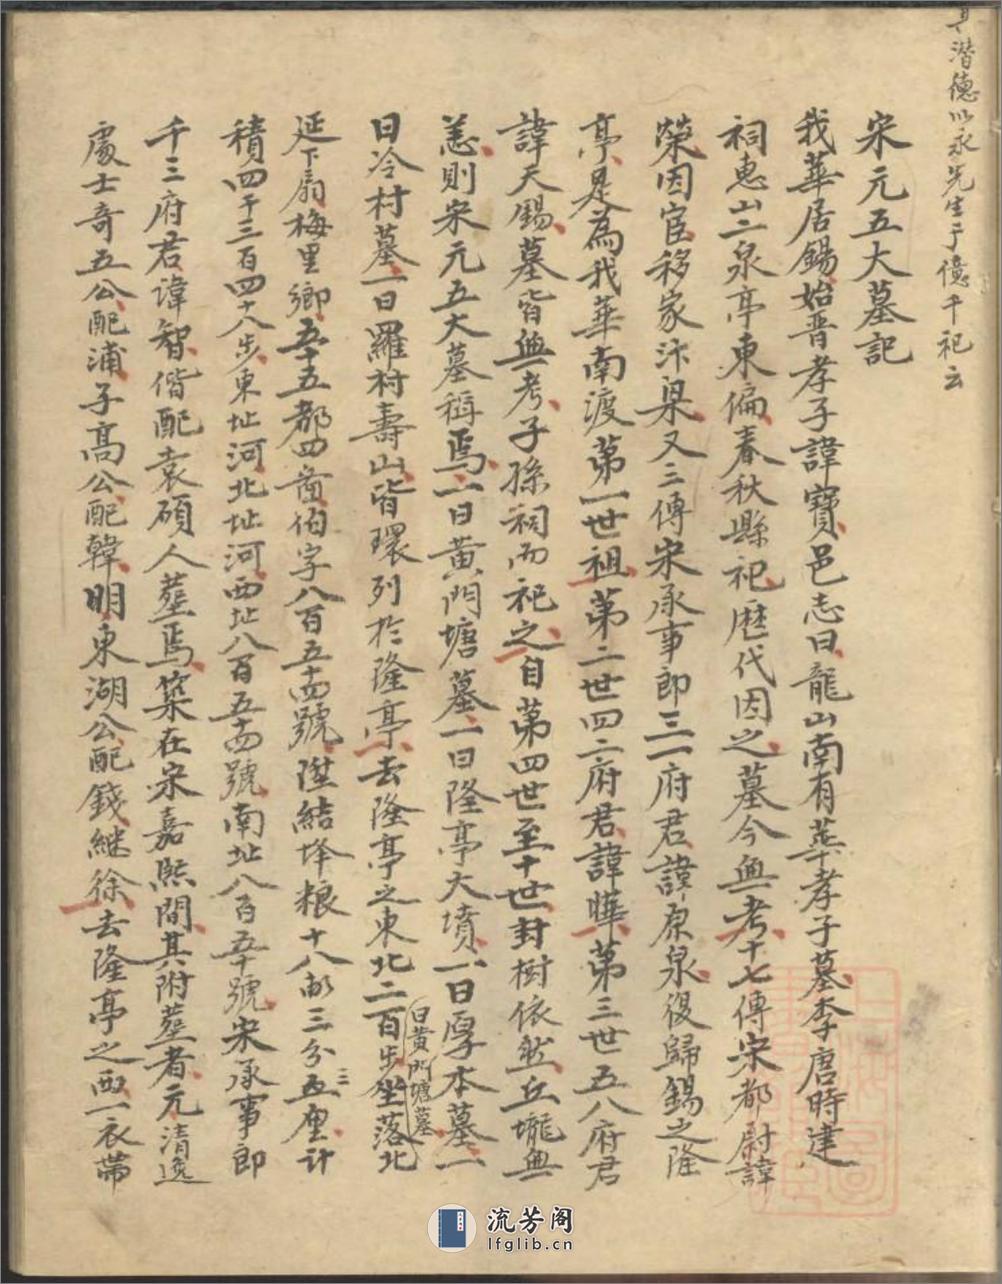 潛德以永先生于億千祀云
宋元五大墓記
我華居錫始晋孝子諱寶邑志曰龍山南有華孝子墓李唐時建
祠惠山二泉亭東偏春秋縣祀歷代因之墓今無考十七傳宋都尉諱
榮因宦移家汴梁又三傳宋承事郎三一府君諱原泉復歸錫之隆
亭是為我華南渡第一世祖第二世四二府君諱曄第三世五八府君
諱天錫墓皆無考子孫祠而祀之自第四世至十世封樹依然丘壠無
恙則宋元五大墓稱焉一曰黃門塘墓一曰隆亭大墳一曰厚本墓一
曰冷村墓一曰羅村壽山皆環列於隆亭去隆亭之東北二百步曰黃門塘墓坐落北
延下扇梅里鄉五十五都四啚伯字八百五十四號陞結垰粮十八畝三分五厘三計
積四千三百四十八步東址河北址河西址八百五十四號南址八百五十號宋承事郎
千三府君諱智偕配袁碩人塟焉築在宋嘉熙間其附塟者元清逸
處士奇五公配浦子高公配韓明東湖公配錢継徐去隆亭之西一衣帶
流芳阁
lfglib.cn